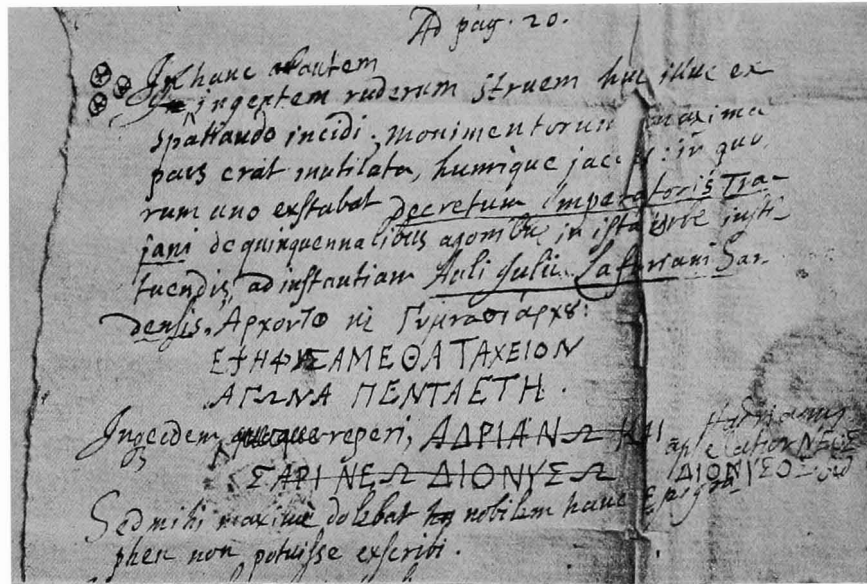 Ad pag. 20.
In hanc autem
ingentem ruderum struem huc illuc ex
spatiando incidi. monimentorum maxima
pars erat mutilata, humique jacens: in quo
rum uno exstabat decretum Imperatoris Tra-
jani de quinquennalibus agonibus in ista urbe insti
tuendis, ad instantiam Auli Julii Lafuriani Sar-
densis, Αρχοντος Γυμνασιάρχȣ:
ΕΨΗΦΙΣΑΜΕΘΑ ΤΑΧΕΙΟΝ
ΑΓΩΝΑ ΠΕΝΤΑΕΤΗ.
reperi, ΑΔΡΙΑΝΩ ΚΑΙ
ΣΑΡΙ ΝΕΩ ΔΙΟΝΥΣΩ
Hadrianus
ΝΕΟΣ
ΔΙΟΝΥΣΟΣ
Sed mihi maxime dolebat nobilem hanc Epigra
phen non potuisse exscribi.